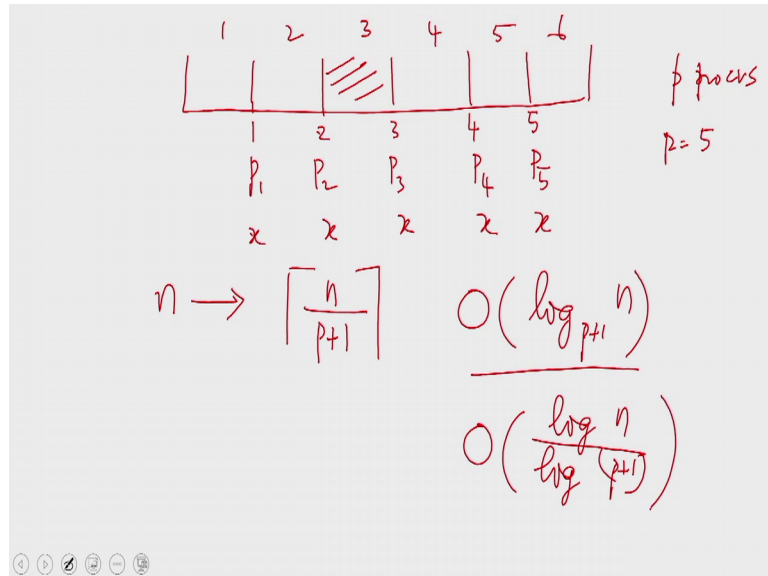 1 2 3 4 5 6
p procrs
1 2 3 4 5
p = 5
P₁ P₂ P₃ P₄ P₅
x x x x x
n → ⌈n/(p+1)⌉ O(log_{p+1} n)
O(log n / log (p+1))